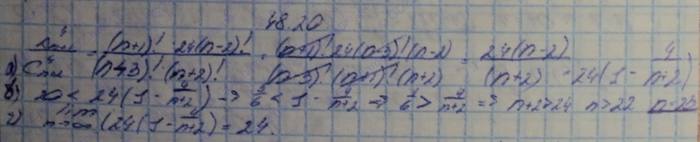 48.20
а) A⁴ₙ₊₁ / C⁴ₙ₊₂ = (n+1)! · 24(n-2)! / (n-3)! · (n+2)! = (n+1)! 24(n-3)! (n-2) / (n-3)! (n+1)! (n+2) = 24(n-2) / (n+2) = 24(1 - 4/(n+2))
б) 20 < 24(1 - 4/(n+2)) → 5/6 < 1 - 4/(n+2) → 1/6 > 4/(n+2) ⇒ n+2>24 n>22 n=23
г) lim n→∞ (24(1 - 4/(n+2)) = 24.